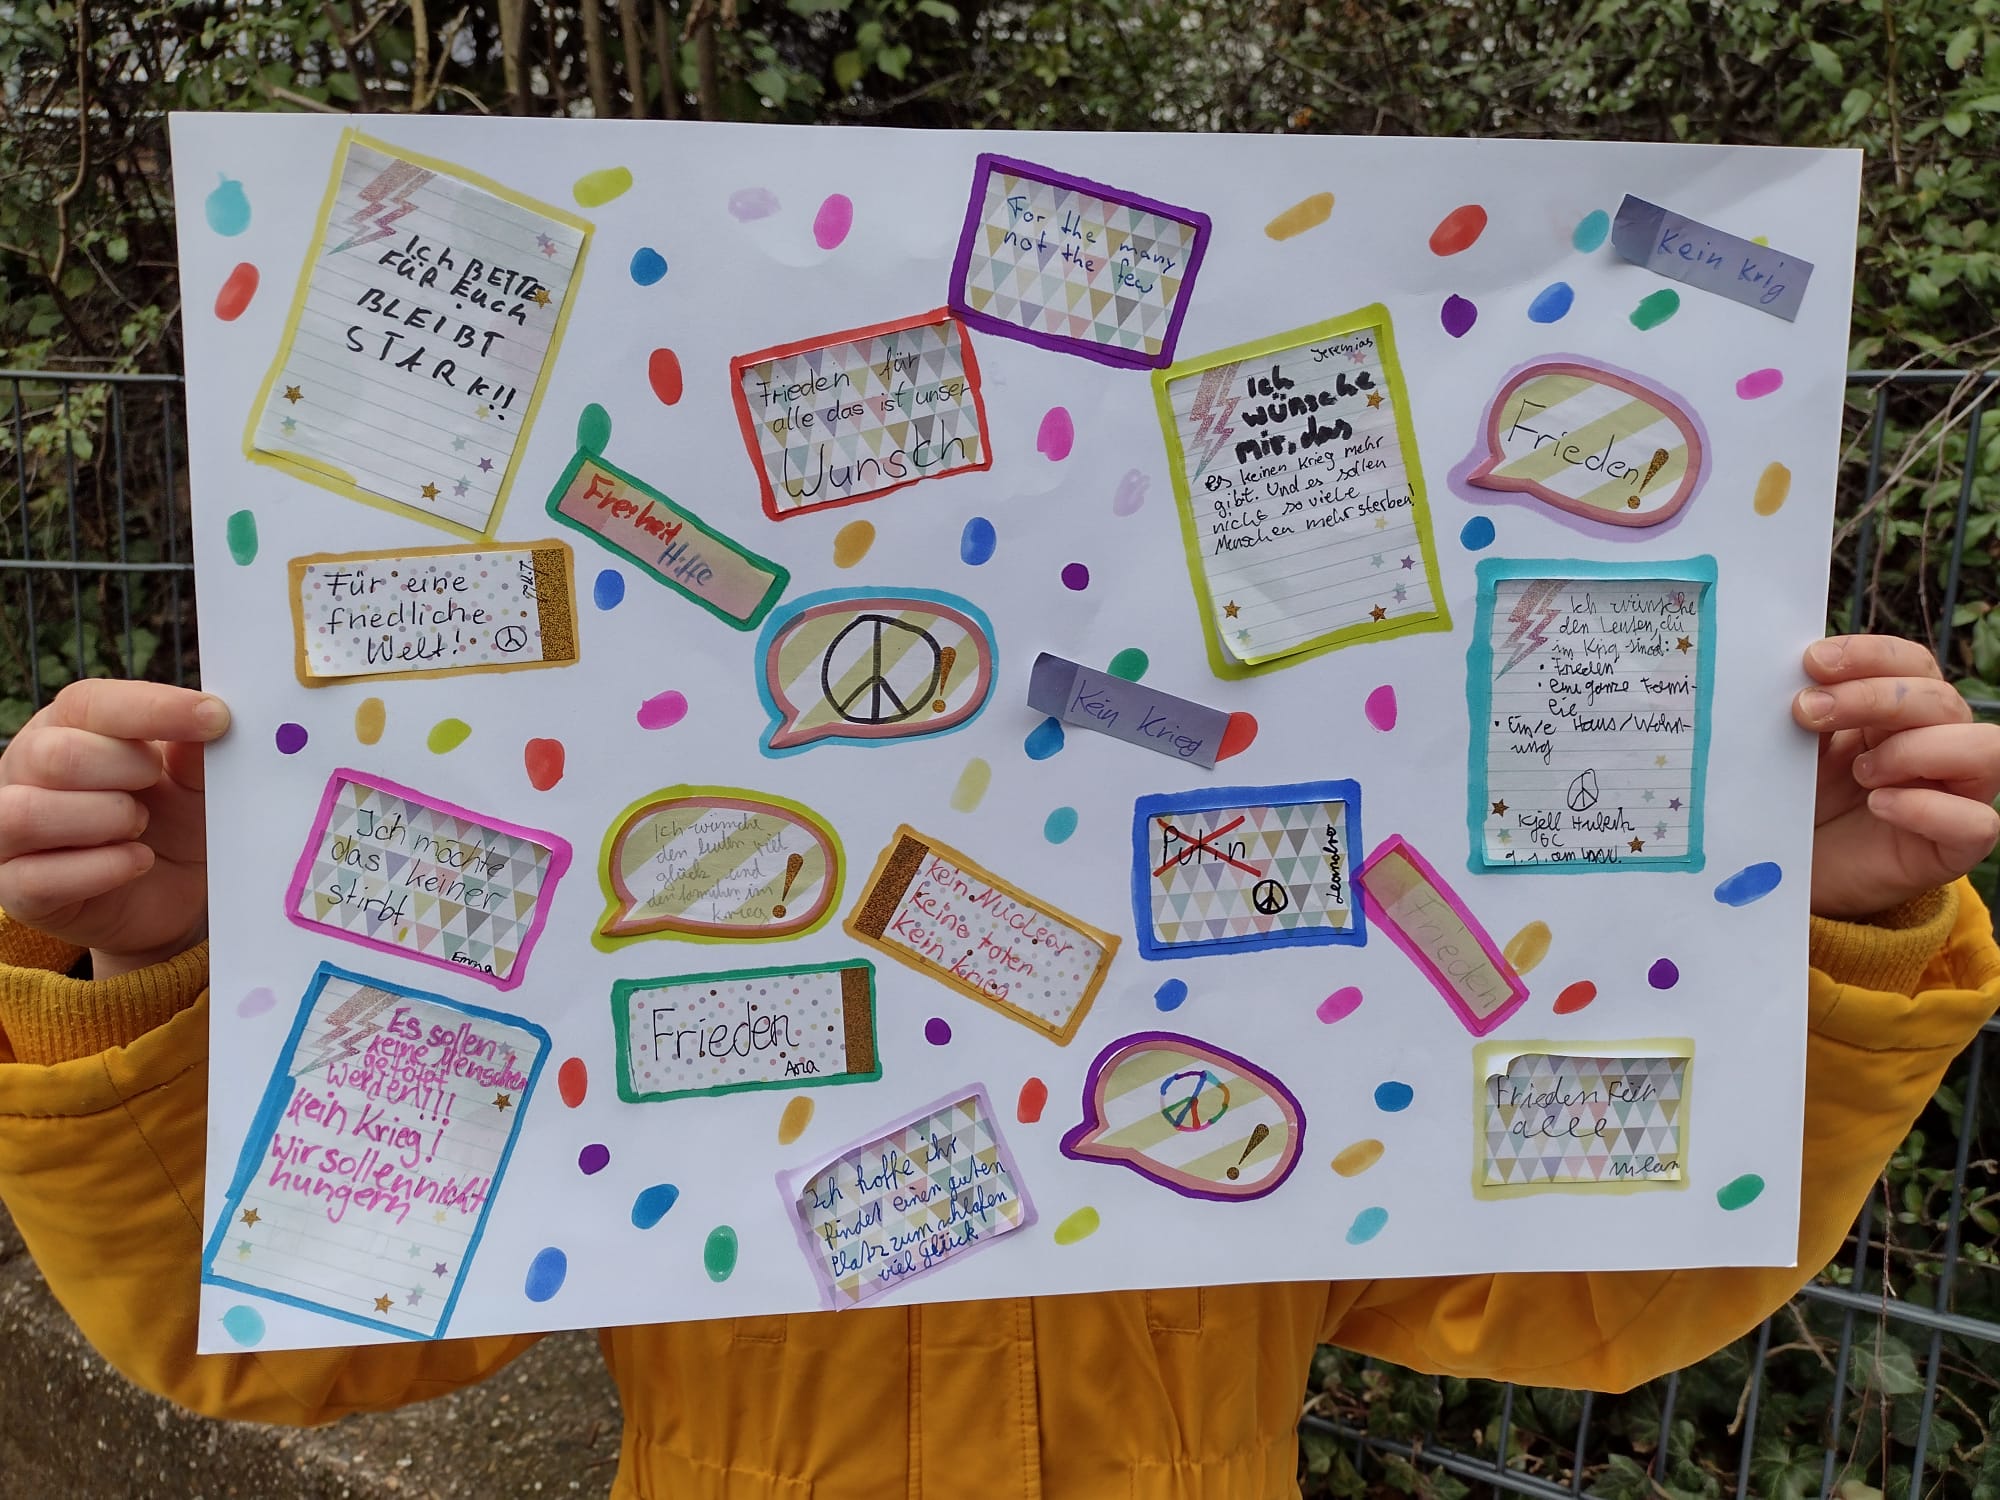 Ich BETTE
FÜR EUCH
BLEIBT
STARK!!
For the many
not the few
Kein Krig
Frieden für
alle das ist unser
Wunsch
Jeremias
Ich
wünsche
mir, das
es keinen Krieg mehr
gibt. Und es sollen
nicht so viele
Menschen mehr sterben!
Frieden!
Freiheit
Hilfe
Für eine
friedliche
Welt!
Ich wünsche
den Leuten, di
im Krig sind:
• Frieden
• eine ganze Fami-
lie
• Ein/e Haus/Wohn-
ung
Kjell Hubert
6C
Kein Krieg
Ich möchte
das keiner
stirbt
Emma
Ich wünsche
den leuten viel
glück und
den familien im
krieg
kein Nuclear
keine toten
kein krieg
Putin
Leandro
Frieden
Es sollen
keine Menschen
getötet
werden!!!
Kein Krieg!
Wir sollen nicht
hungern
Frieden
Ana
Ich hoffe ihr
findet einen guten
Platz zum schlafen
viel Glück
Frieden Feir
alle
milan